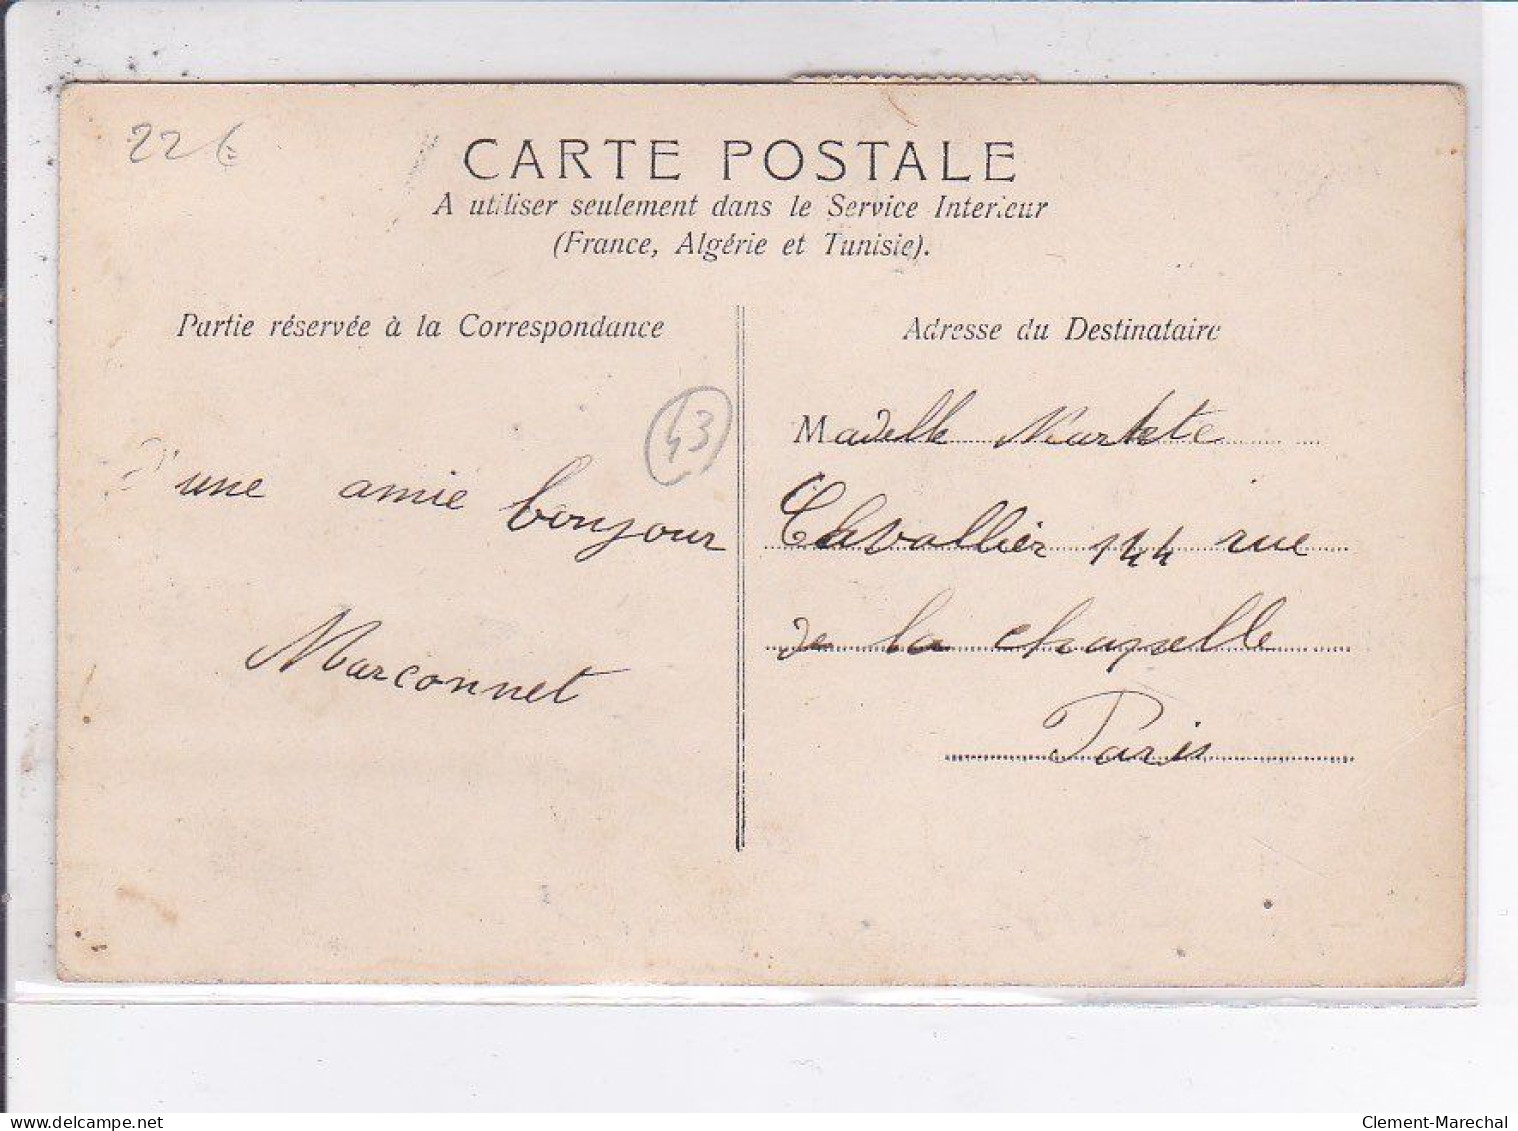 22€
CARTE POSTALE
A utiliser seulement dans le Service Interieur
(France, Algérie et Tunisie).
Partie réservée à la Correspondance
Adresse du Destinataire
43
D'une amie bonjour
Marconnet
Madelle
Chevallier 144 rue
de la chapelle
Paris
delcampe.net
Clement-Marechal